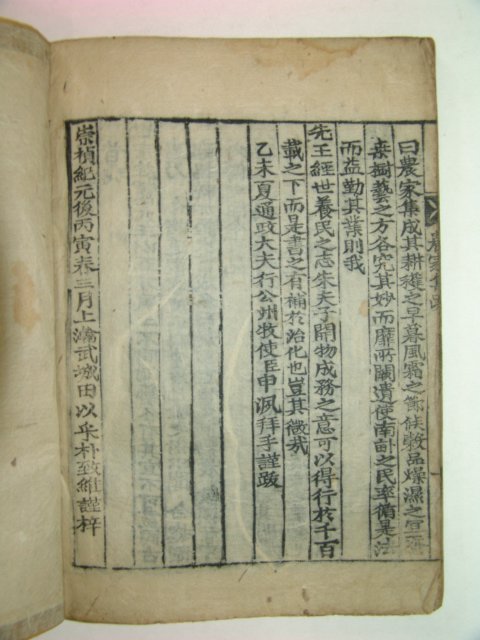 曰農家集成其耕穫之早暮風霜之節候穀品燥濕之宜
桑樹藝之方各究其妙而靡所闕遺使南畝之民率循是法
而益勤其業則我
先王經世養民之志朱夫子開物成務之意可以得行於千百
載之下而是書之有補於治化也豈其微哉
乙未夏通政大夫行公州牧使臣申洬拜手謹跋
崇禎紀元後丙寅春三月上澣武城田以采朴致維謹梓
農家集成